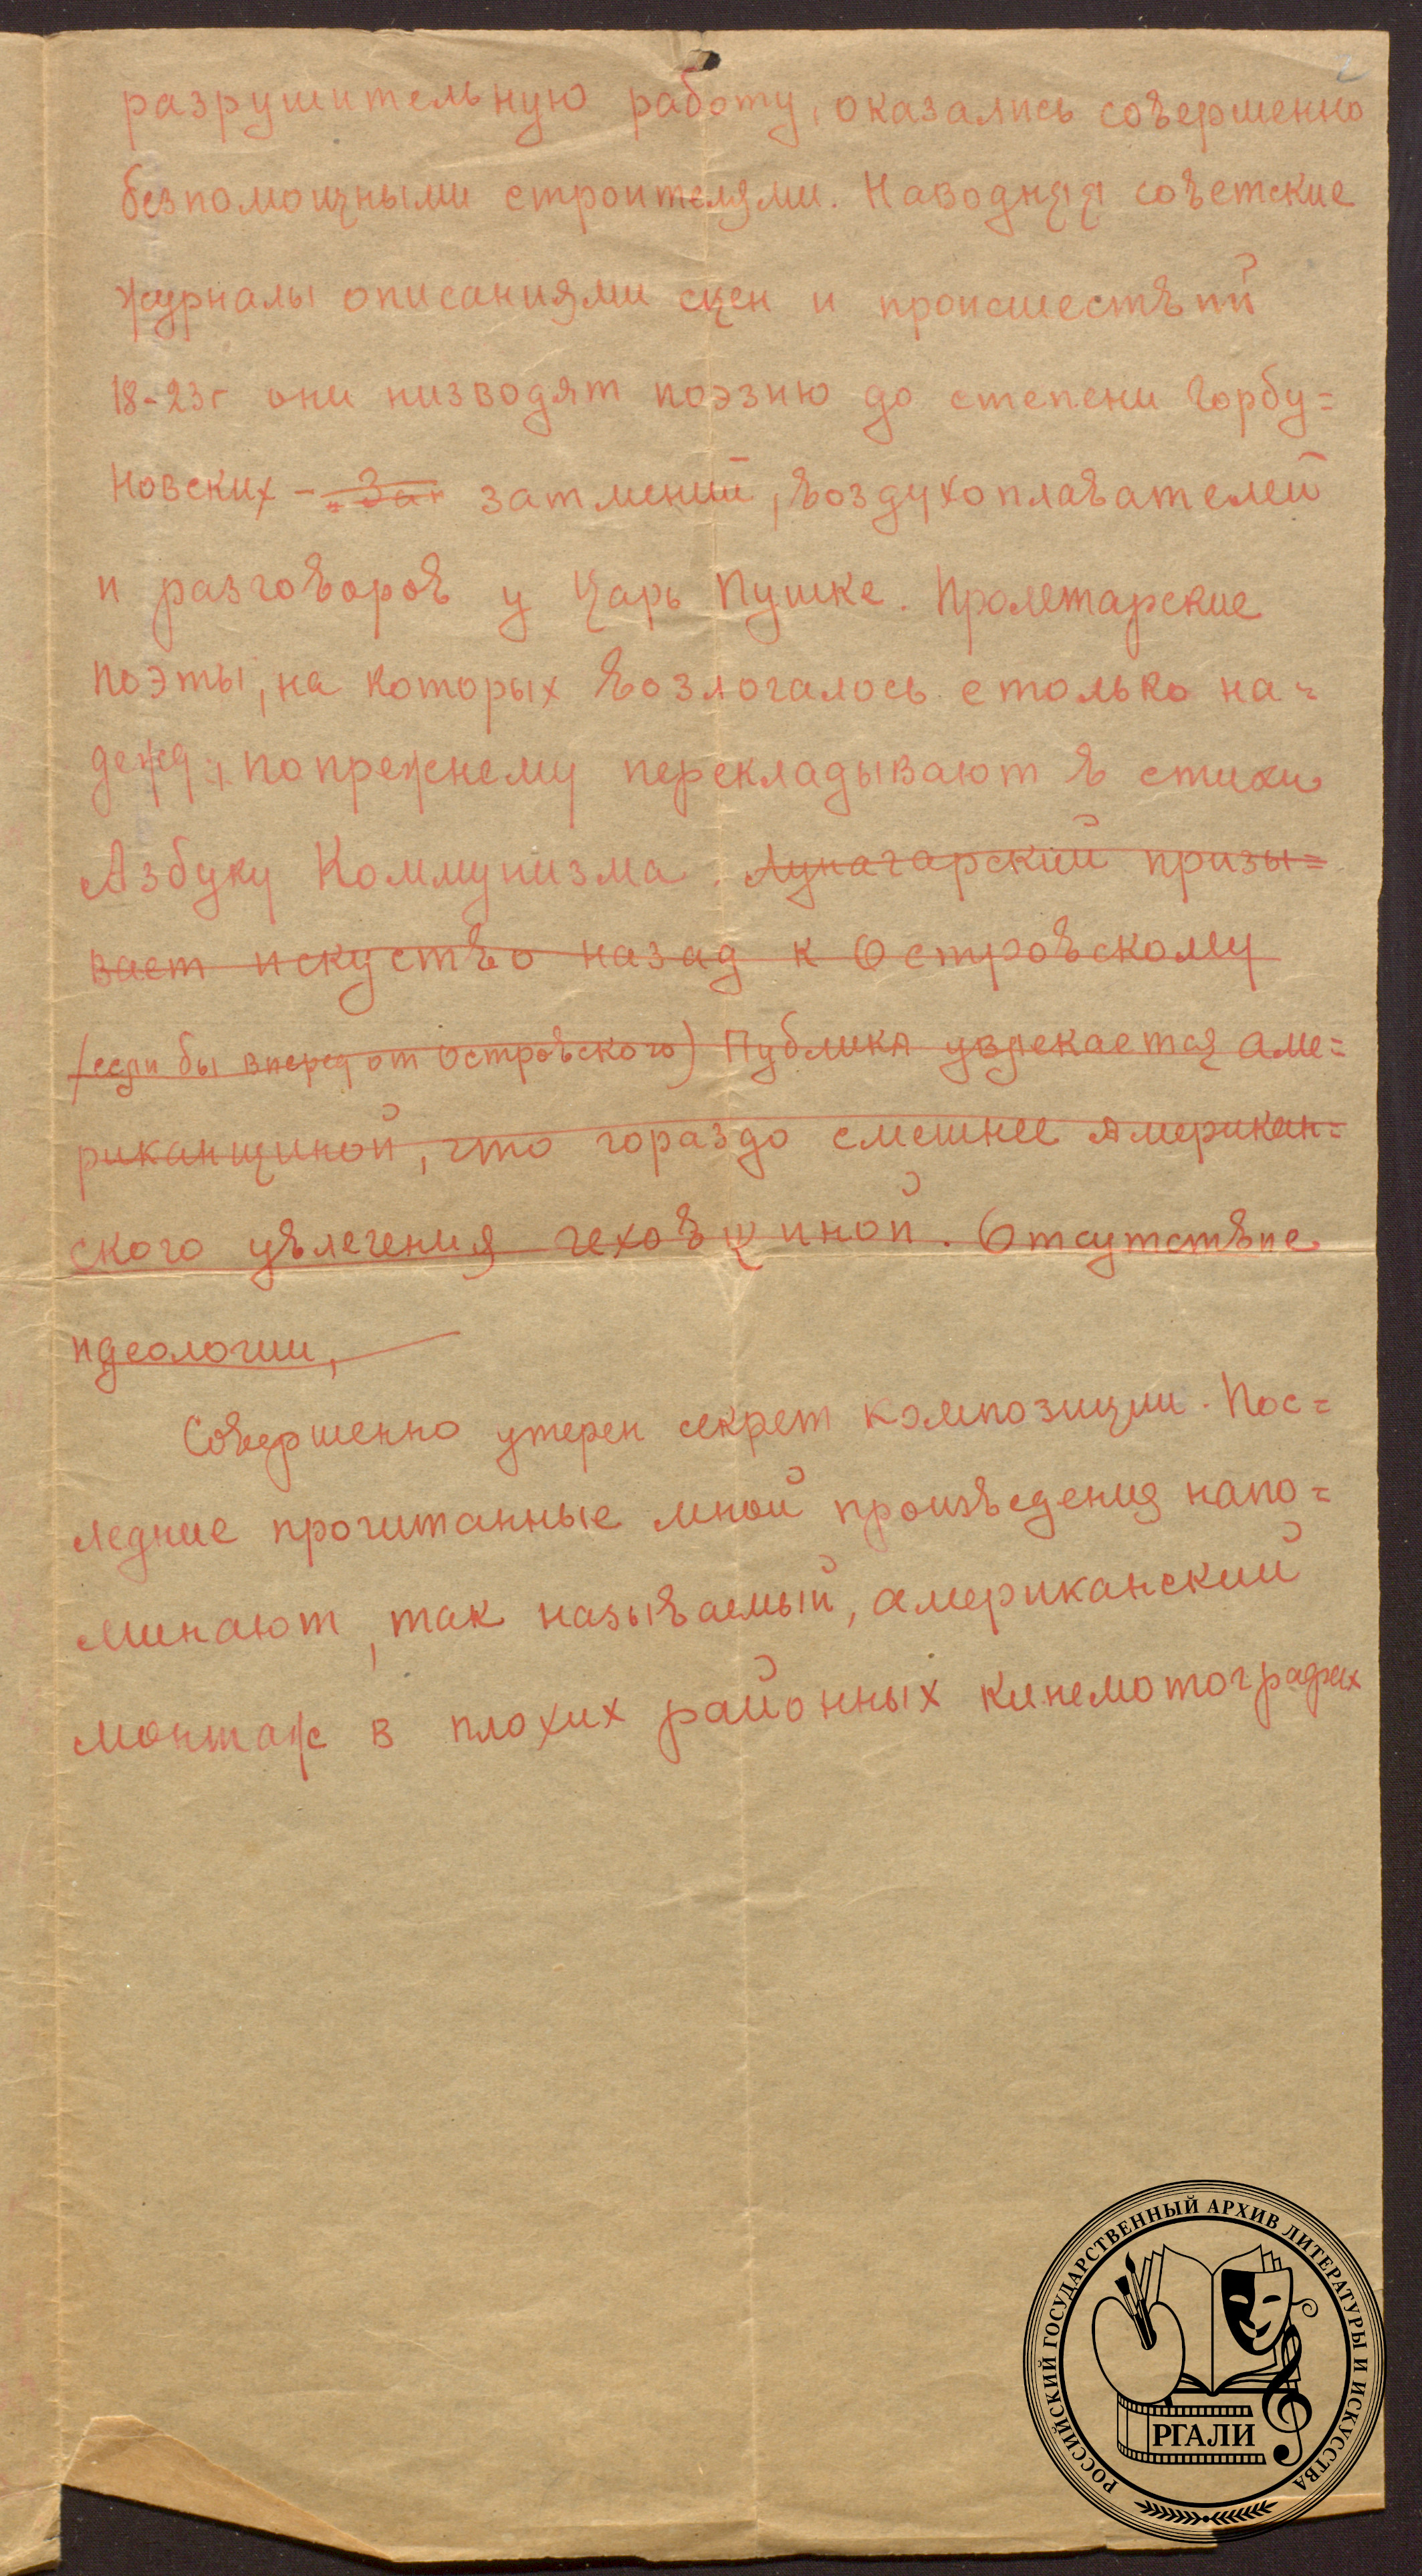 2
разрушительную работу, оказались совершенно
безпомощными строителями. Наводняя советские
журналы описаниями сцен и происшествий
18-23г они низводят поэзию до степени Горбу=
новских - „За" затмений, воздухоплавателей
и разговоров у Царь Пушке. Пролетарские
поэты, на которых возлогалось столько на-
дежд, попрежнему перекладывают в стихи
Азбуку Коммунизма. Луначарский призы=
вает искуство назад к Островскому
(если бы вперед от Островского) Публика увлекается аме=
риканщиной, что гораздо смешнее Американ=
ского увлечения чеховщиной. Отсутствие
идеологии,
Совершенно утерен секрет композиции. Пос=
ледние прочитанные мной произведения напо=
минают, так называемый, американский
монтаж в плохих районных кинемотографах
РОССИЙСКИЙ ГОСУДАРСТВЕННЫЙ АРХИВ ЛИТЕРАТУРЫ И ИСКУССТВА
РГАЛИ